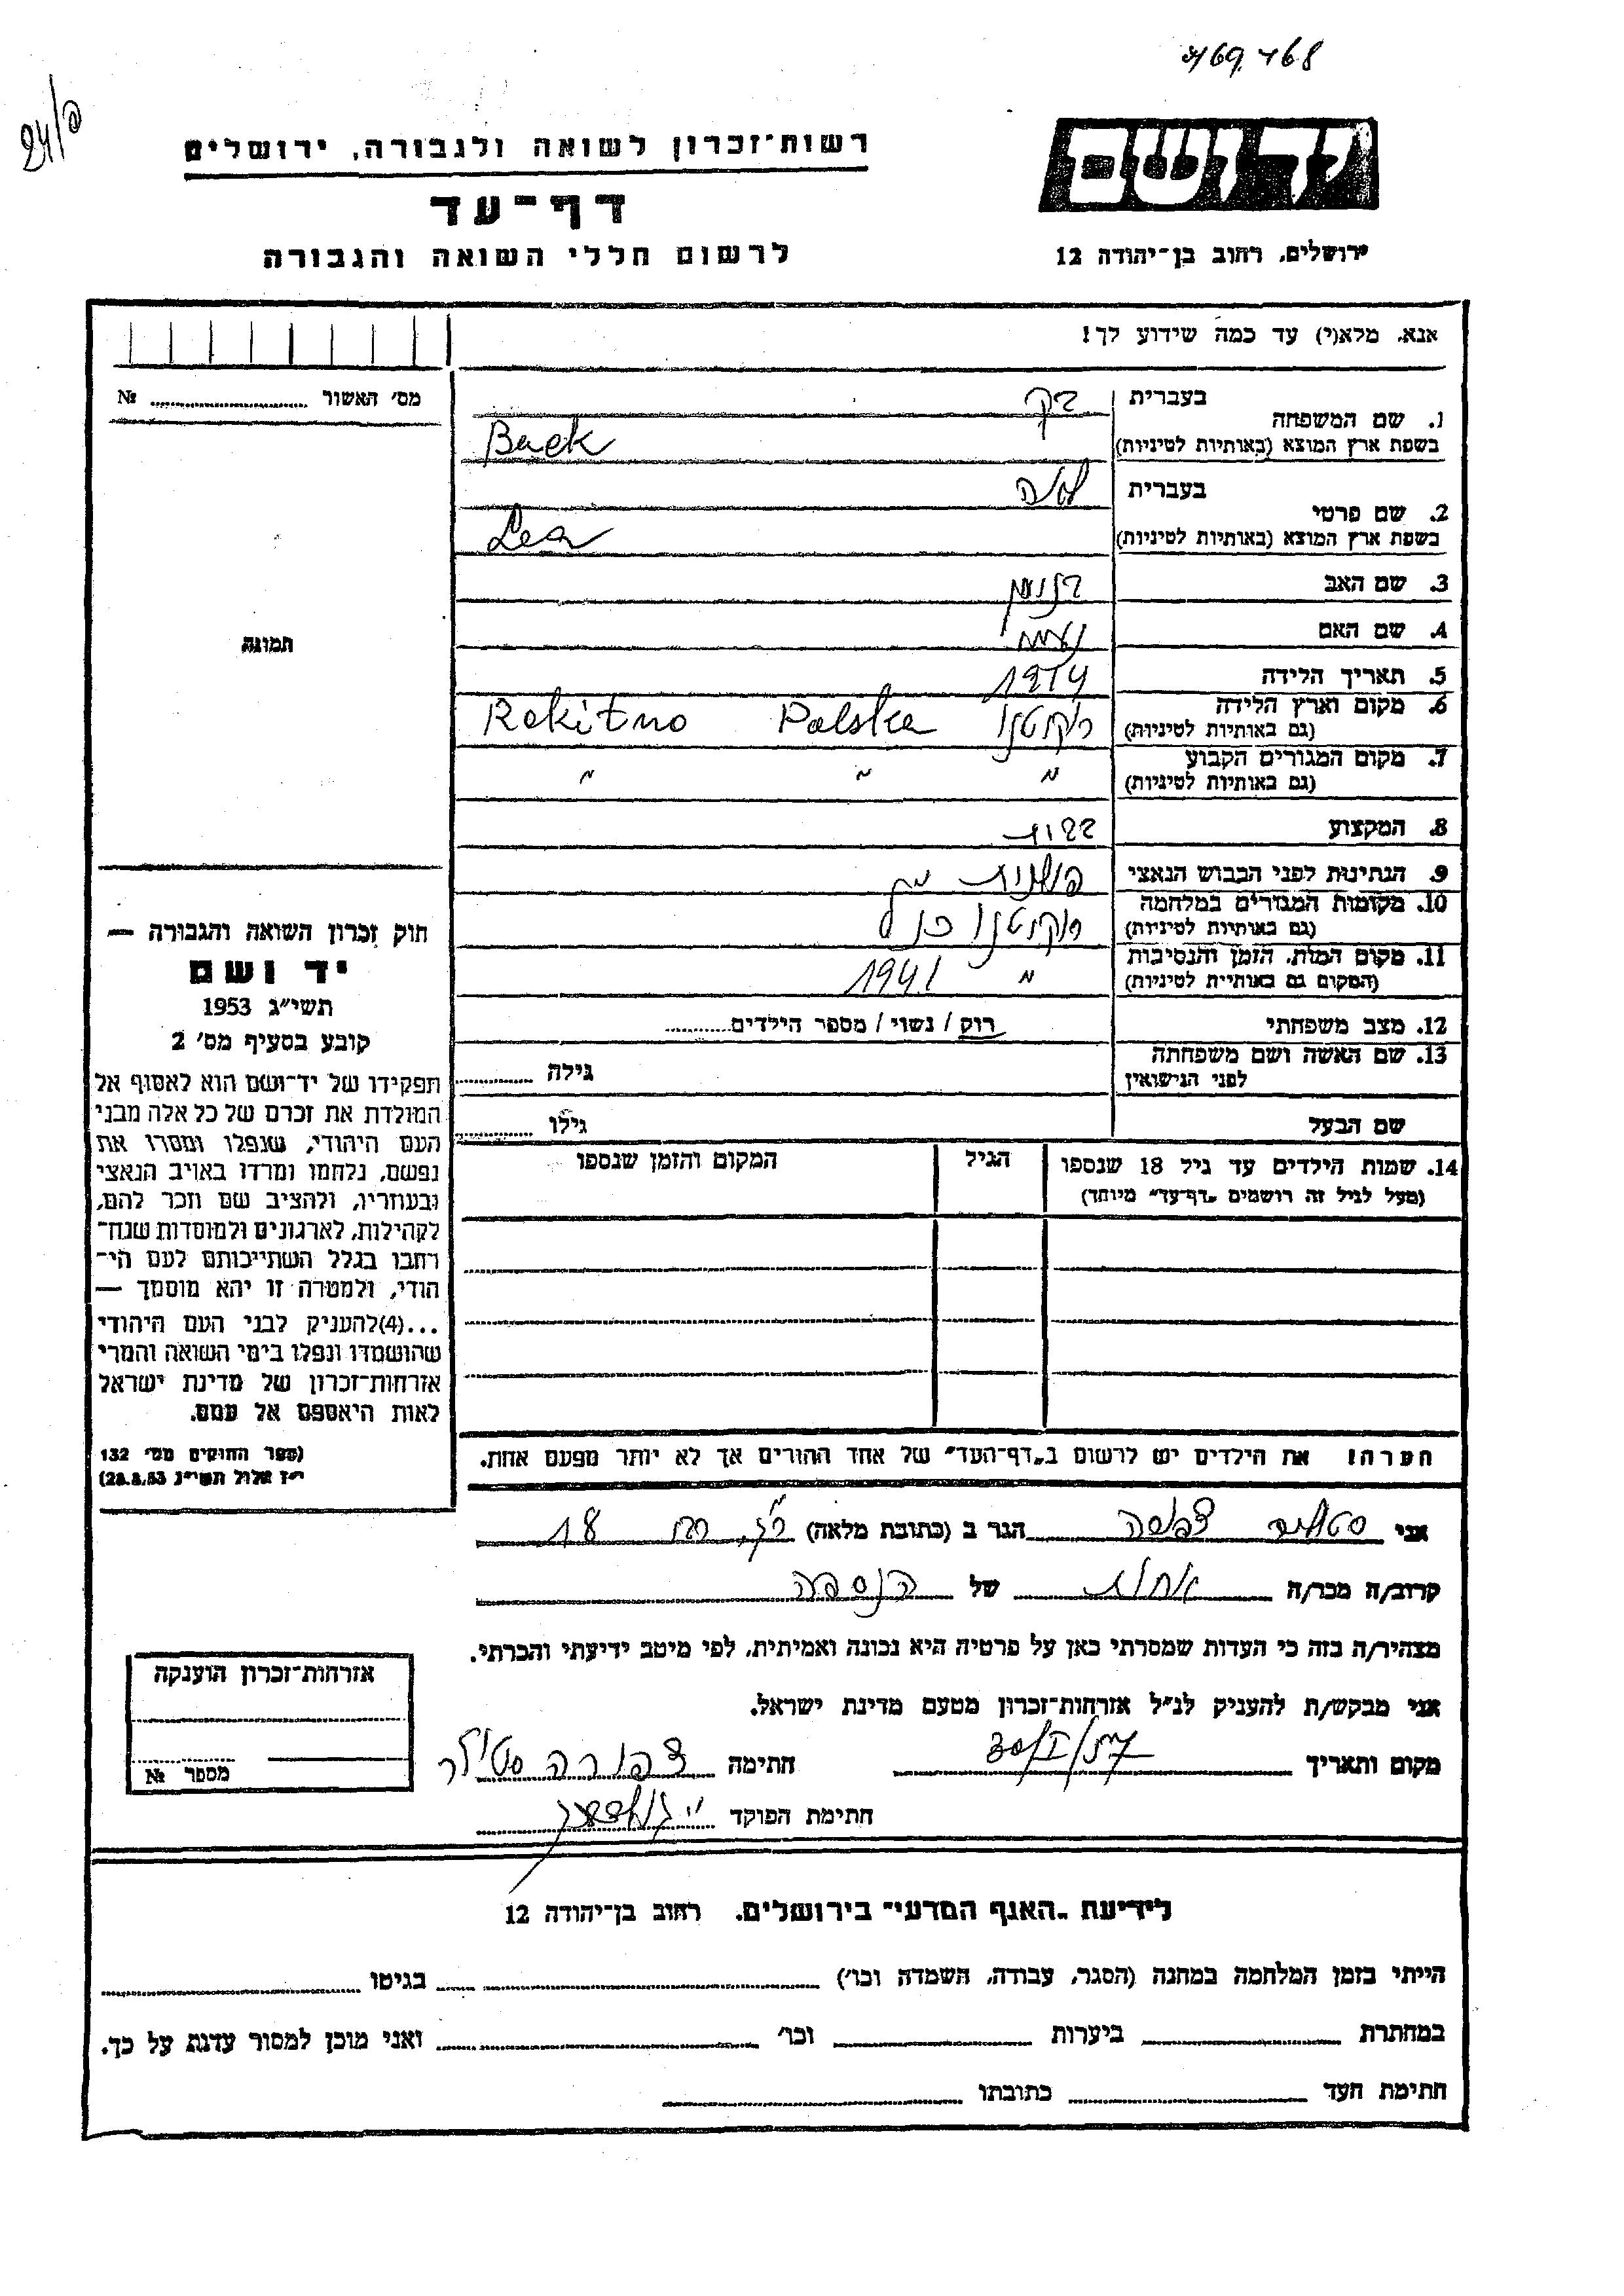 169.468
24/a
רשות־זכרון לשואה ולגבורה, ירושלים
דף־עד
לרשום חללי השואה והגבורה
יד ושם
ירושלים, רחוב בן־יהודה 12
אנא, מלא(י) עד כמה שידוע לך!
מס׳ האשור № 
1. שם המשפחה
בעברית בק
בשפת ארץ המוצא (באותיות לטיניות) Baek
2. שם פרטי
בעברית לאה
בשפת ארץ המוצא (באותיות לטיניות) Lea
3. שם האב
4. שם האם
5. תאריך הלידה
6. מקום וארץ הלידה (גם באותיות לטיניות) רוקיטנו Polska Rokitno
7. מקום המגורים הקבוע (גם באותיות לטיניות) " " "
8. המקצוע
9. הנתינות לפני הכבוש הנאצי פולנית
10. מקומות המגורים במלחמה (גם באותיות לטיניות) רוקיטנו כנ"ל
11. מקום המות, הזמן והנסיבות (המקום גם באותיות לטיניות) " 1941
12. מצב משפחתי רוק / נשוי / מספר הילדים
13. שם האשה ושם משפחתה לפני הנישואין גילה
שם הבעל גילו
14. שמות הילדים עד גיל 18 שנספו הגיל המקום והזמן שנספו
(מעל לגיל זה רושמים „דף־עד” מיוחד)
הערה! את הילדים יש לרשום ב„דף־העד” של אחד ההורים אך לא יותר מפעם אחת.
תמונה
חוק זכרון השואה והגבורה —
יד ושם
תשי״ג 1953
קובע בסעיף מס׳ 2
תפקידו של יד־ושם הוא לאסוף אל
המולדת את זכרם של כל אלה מבני
העם היהודי, שנפלו ומסרו את
נפשם, נלחמו ומרדו באויב הנאצי
ובעוזריו, ולהציב שם וזכר להם,
לקהילות, לארגונים ולמוסדות שנח־
רבו בגלל השתייכותם לעם הי־
הודי, ולמטרה זו יהא מוסמך —
...(4)להעניק לבני העם היהודי
שהושמדו ונפלו בימי השואה והמרי
אזרחות־זכרון של מדינת ישראל
לאות היאספם אל עמם.
(ספר החוקים מס׳ 132
י״ז אלול תשי״ג 28.8.53)
אני צפורה הגר ב (כתובת מלאה) 18
קרוב/ה מכר/ה אחות של הנספה
מצהיר/ה בזה כי העדות שמסרתי כאן על פרטיה היא נכונה ואמיתית, לפי מיטב ידיעתי והכרתי.
אני מבקש/ת להעניק לנ״ל אזרחות־זכרון מטעם מדינת ישראל.
מקום ותאריך חתימה צפורה סטילר
חתימת הפוקד
אזרחות־זכרון הוענקה
מספר №
לידיעת „האגף המדעי” בירושלים, רחוב בן־יהודה 12
הייתי בזמן המלחמה במחנה (הסגר, עבודה, השמדה וכו׳) בגיטו
במחתרת ביערות וכו׳ ואני מוכן למסור עדות על כך.
חתימת העד כתובתו